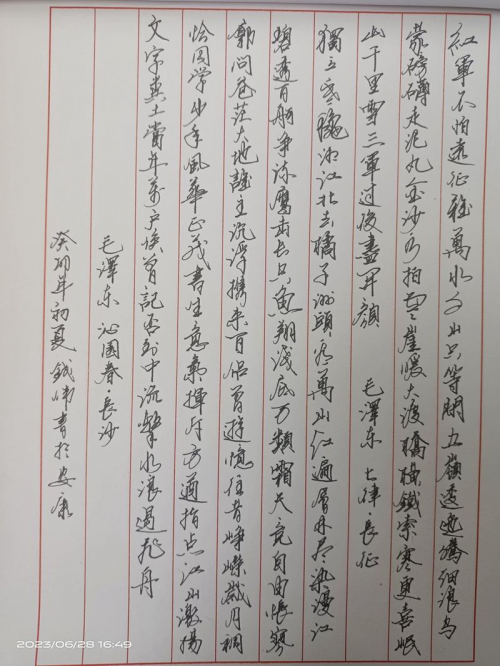 紅軍不怕遠征難萬水千山只等閒五嶺逶迤騰細浪烏
蒙磅礴走泥丸金沙水拍雲崖暖大渡橋橫鐵索寒更喜岷
山千里雪三軍過後盡開顏 毛澤東 七律長征
獨立寒秋湘江北去橘子洲頭看萬山紅遍層林盡染漫江
碧透百舸爭流鷹击长空魚翔淺底万類霜天竞自由悵寥
廓问苍茫大地誰主沉浮携来百侣曾遊憶往昔峥嵘歲月稠
恰同学少年風華正茂書生意氣揮斥方遒指点江山激揚
文字糞土當年萬户侯曾記否到中流擊水浪遏飛舟
毛澤东 沁園春 長沙
癸卯年初夏 鉞偉書於安康
2023/06/28 16:49